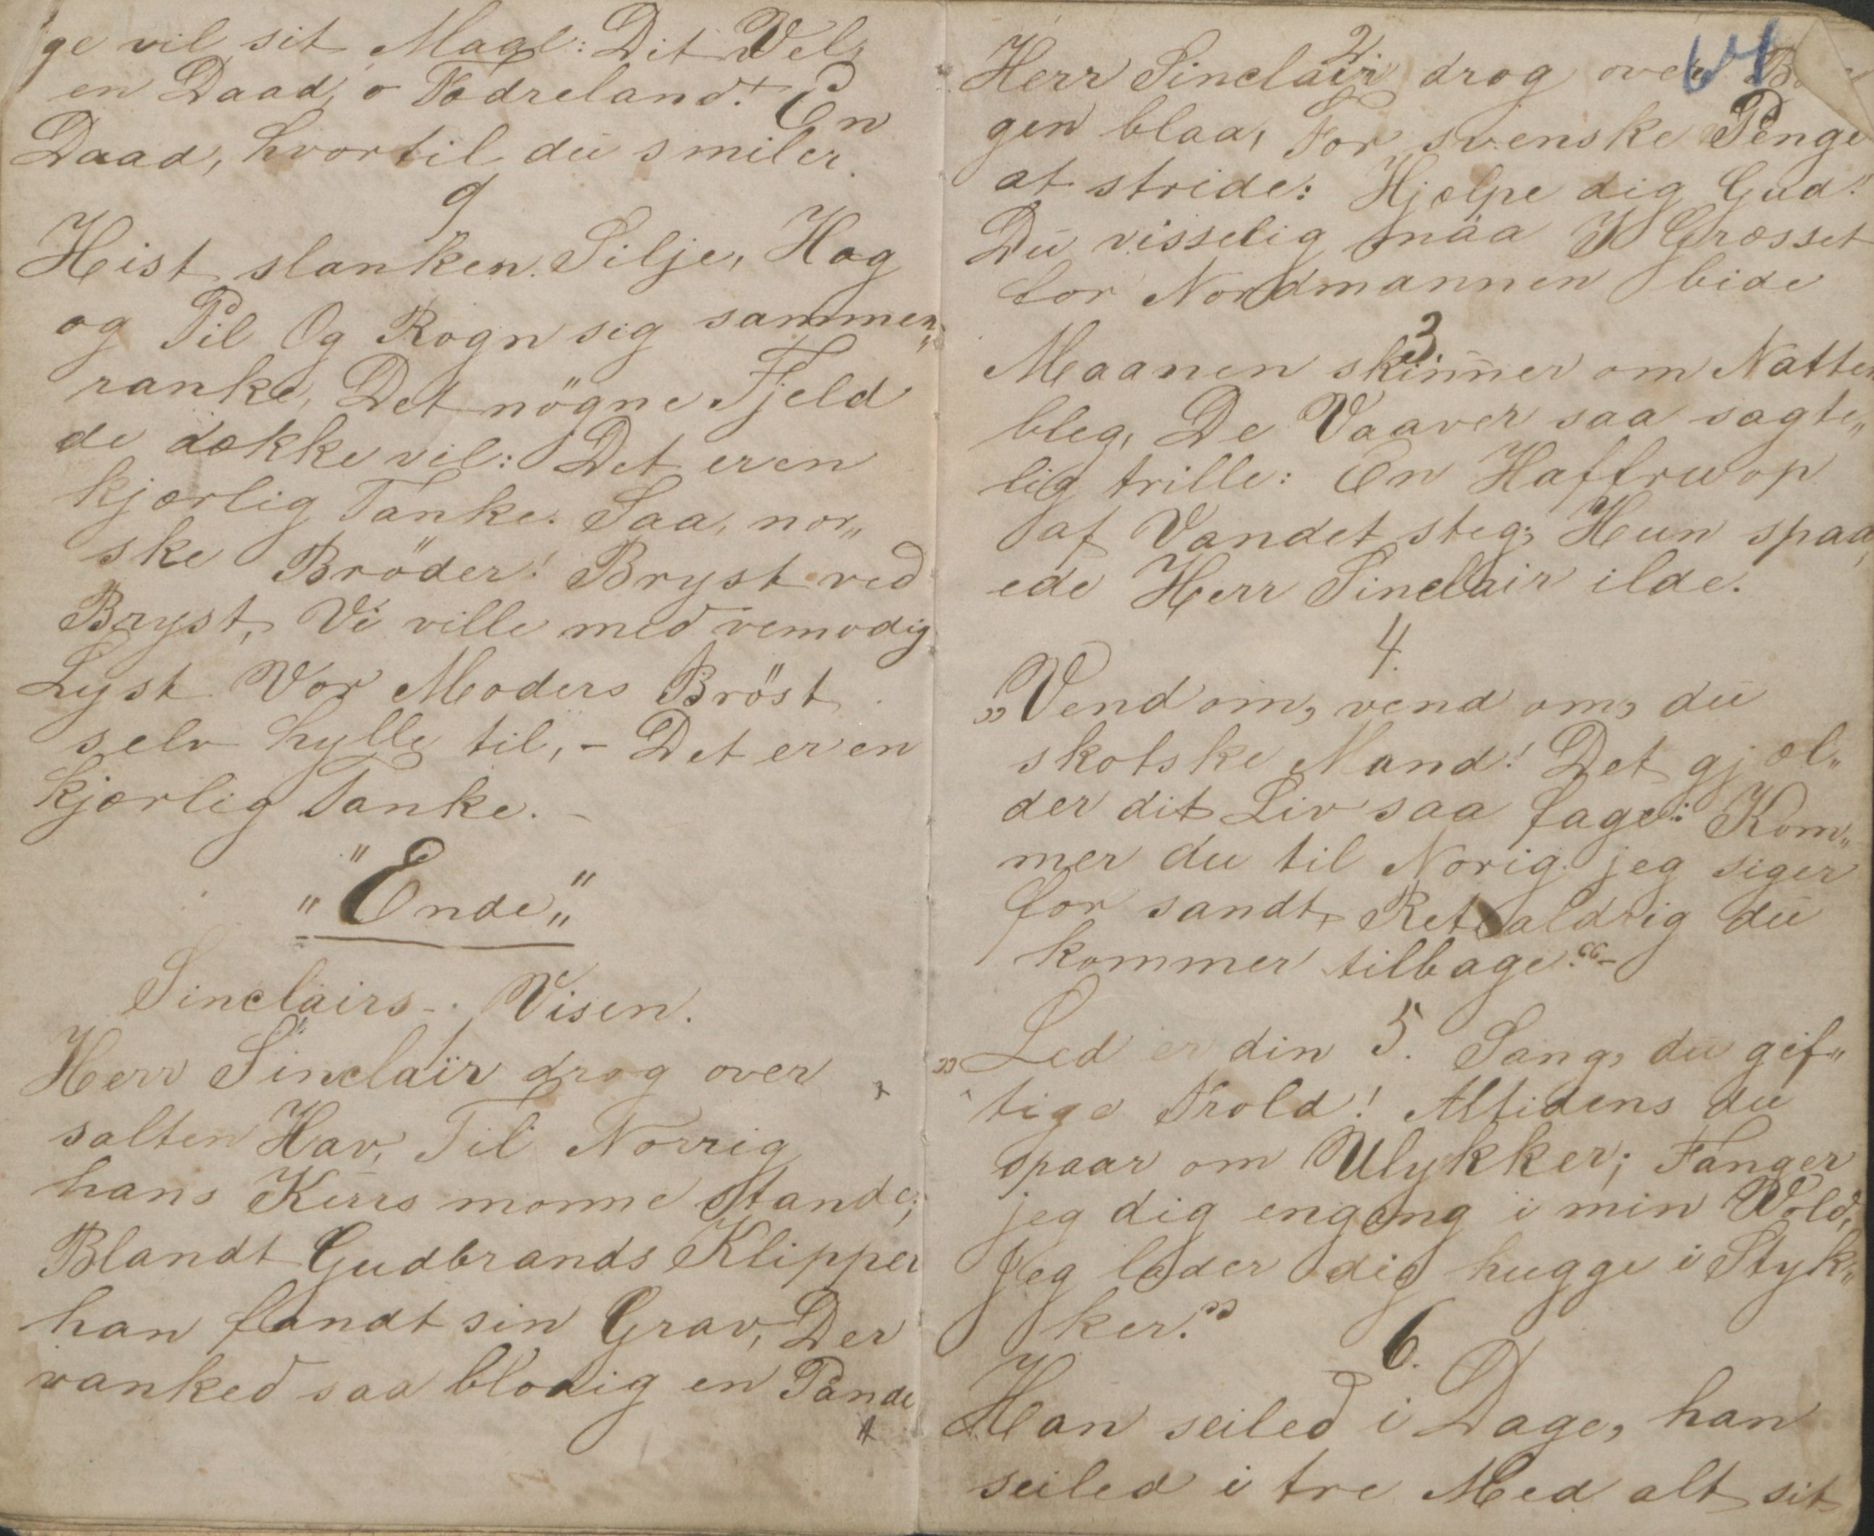 ge vil sit Magl: Dit Vel,
en Daad, o Fædreland! En
Daad, hvortil du smiler.
9
Hist slanken Silje, Hæg
og Pil Og Rogn sig sammen„
ranke, Det nögne Fjeld
de dække vil: Det er en
kjærlig Tanke. Saa, nor„
ske Bröder! Bryst ved
Bryst, Vi ville med vemodig
Lyst Vor Moders Bröst
selv hylle til, – Det er en
kjærlig Tanke. –
"Ende"
Sinclairs - Visen.
Herr Sinclair drog over
salten Hav, Til Norrig
hans Kurs monne stande;
Blandt Gudbrands Klipper
han fandt sin Grav, Der
vanked saa blodig en Pande
64
2
Herr Sinclair drog over
gen blaa, For svenske Penge
at stride: Hjælpe dig Gud!
Du visselig maa I Græsset
for Nordmannen bide
3.
Maanen skinner om Natten
bleg, De Vaaver saa sagte„
lig trille: En Haffru op
af Vandet steg; Hun spaa„
ede Herr Sinclair ilde.
4.
„Vend om, vend om, du
skotske Mand! Det gjæl„
der dit Liv saa fage: Kom„
mer du til Norig jeg siger
for sandt, Ret aldrig du
kommer tilbage." –
„Led er din 5. Sang, du gif„
tige Trold! Altidens du
spaar om Ulykker; Fanger
jeg dig engang i min Vold,
Jeg lader dig hugge i Styk„
ker."
6.
Han seiled i Dage, han
seiled i tre Med alt sit